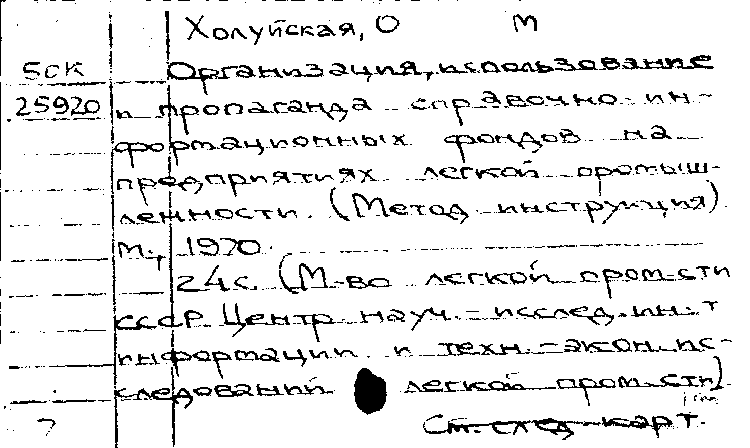 Холуйская, О М
БСК Организация, использование
25920 и пропаганда справочно-ин-
формационных фондов на
предприятиях легкой промыш-
ленности. (Метод. инструкция).
М., 1970.
24 с. (М-во легкой пром-сти
СССР. Центр. науч.-исслед. ин-т
информации и техн.-экон. ис-
следований легкой пром-сти)
См. след. карт.